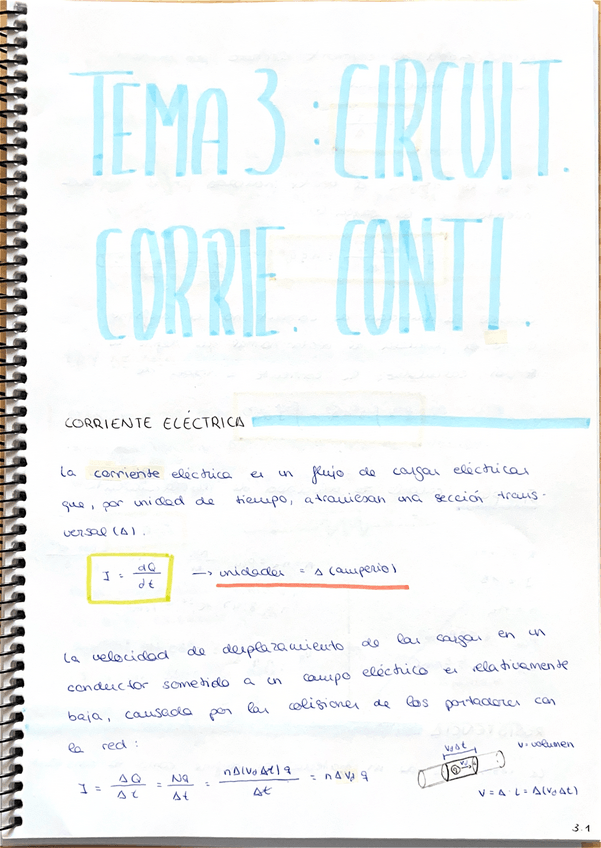 TEMA 3 : CIRCUIT.
CORRIE. CONTI.
CORRIENTE ELÉCTRICA
La corriente eléctrica es un flujo de cargas eléctricas
que, por unidad de tiempo, atraviesan una sección trans-
versal (A).
I = dQ/dt → unidades = A (amperio)
La velocidad de desplazamiento de las cargas en un
conductor sometido a un campo eléctrico es relativamente
baja, causada por las colisiones de los portadores con
la red:
I = ΔQ/Δt = Nq/Δt = nA(vdΔt)q/Δt = nAvd q
vdΔt
vd
V=volumen
V = A · L = A(vdΔt)
3.1